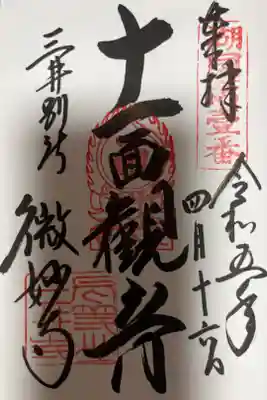 奉拝
令和五年
四月十六日
十一面観音
三井別所
微妙寺